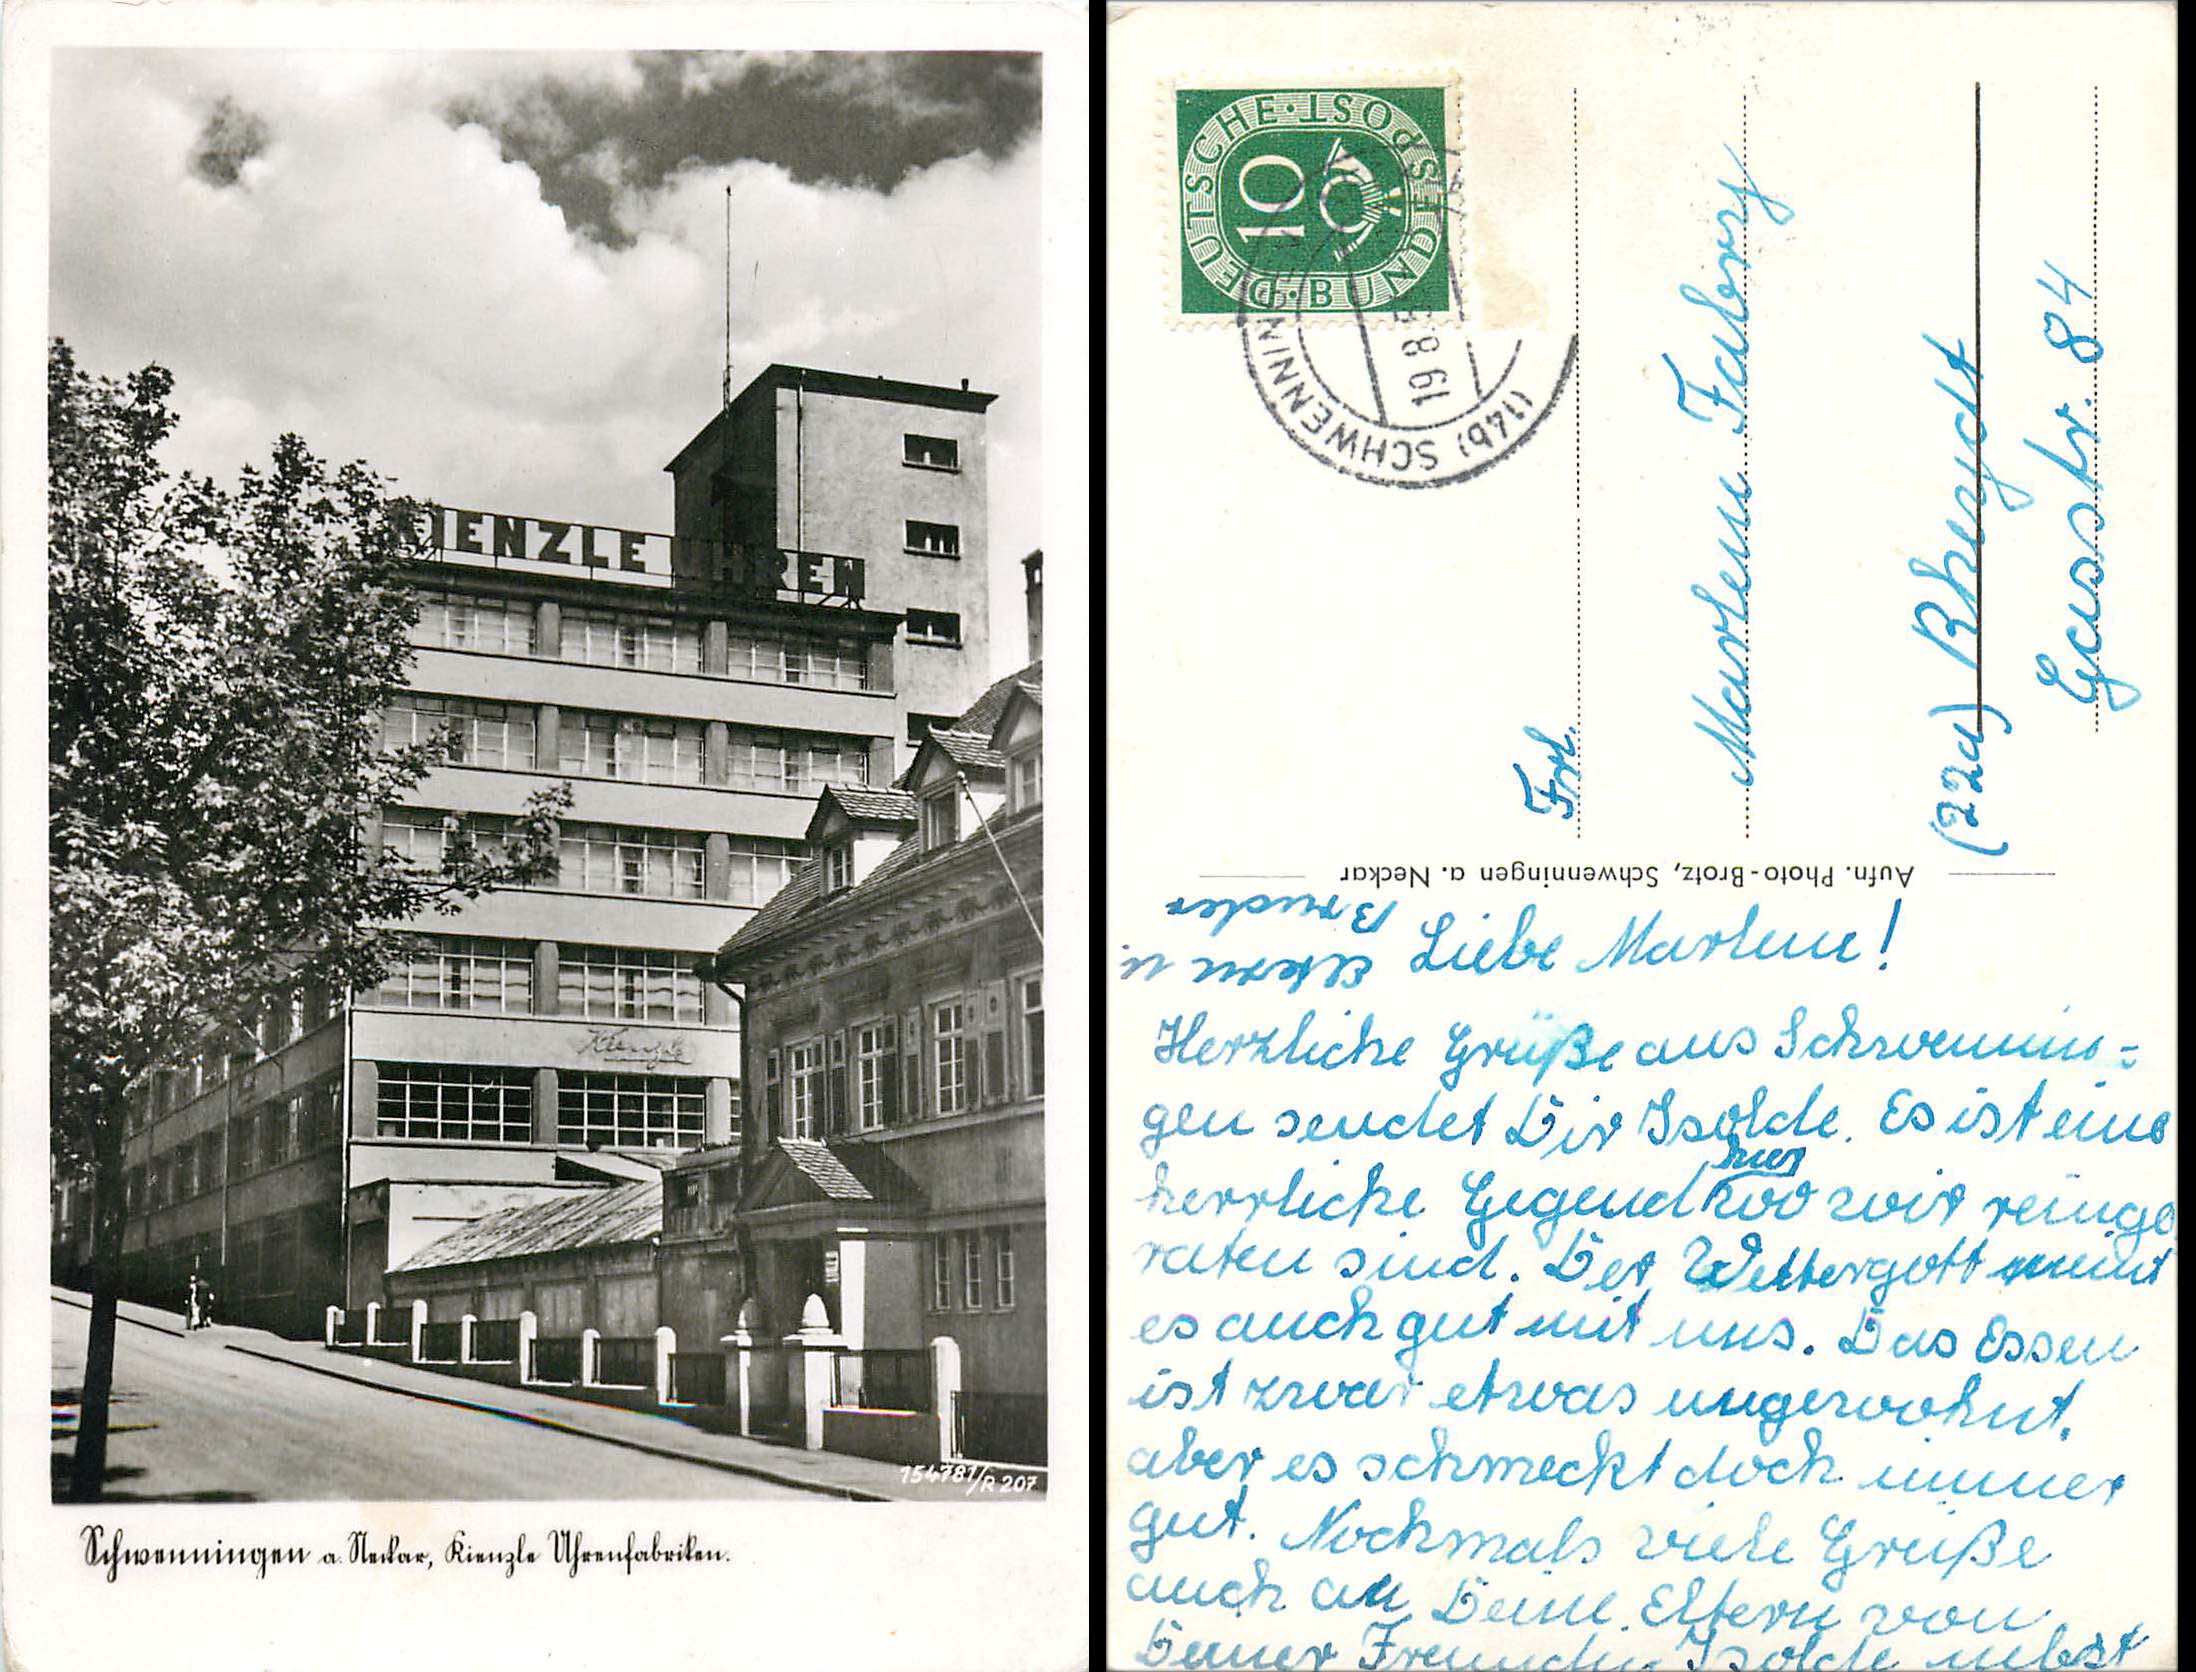 KIENZLE UHREN
Kienzle
154781/R 207
Schwenningen a. Neckar, Kienzle Uhrenfabriken.
DEUTSCHE · POST
10
BUNDESPOST
(14b) SCHWENNINGEN
19 8 5
Frl.
Marlene Fabry
(22a) Rheydt
Gasstr. 84
Aufn. Photo-Brotz, Schwenningen a. Neckar
Liebe Marlene!
Herzliche Grüße aus Schwennin-
gen sendet Dir Isolde. Es ist eine
herrliche Gegend hier wo wir reinge
raten sind. Der Wettergott meint
es auch gut mit uns. Das Essen
ist zwar etwas ungewohnt.
aber es schmeckt doch immer
gut. Nochmals viele Grüße
auch an Deine Eltern von
Deiner Freundin Isolde nebst
Eltern u
Bruder